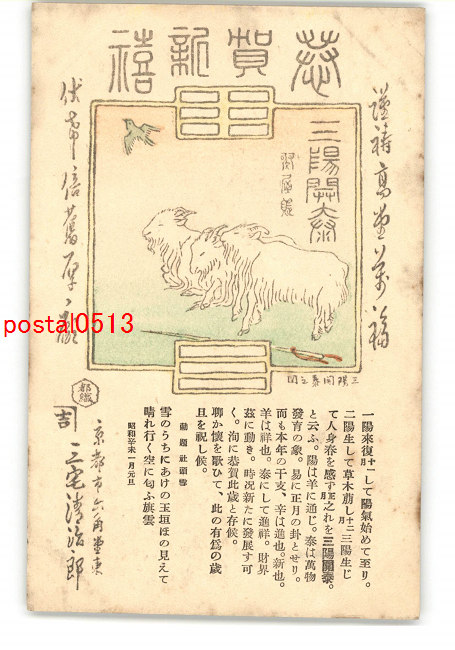 恭賀新禧
謹禱高堂萬福
三陽開泰
伏希倍舊厚顧
postal0513
三陽開泰之圖
都織
一陽來復十一月して陽氣始めて至り。
二陽生して草木萠し十二月三陽生じ
て人身春を感ず正月之れを三陽開泰。
と云ふ。陽は羊に通じ。泰は萬物
發育の象。易に正月の卦とせり。
而も本年の干支、辛は進也。新也。
羊は祥也。泰にして進祥。財界
茲に動き。時況新たに發展す可
く。洵に恭賀此歲と存候。
聊か懷を歌ひて、此の有爲の歲
旦を祝し候。
勅題 社頭雪
雪のうちにあけの玉垣ほの見えて
晴れ行く空に匂ふ旗雲
昭和辛未一月元旦
京都市六角堂東
吉 三宅清治郎